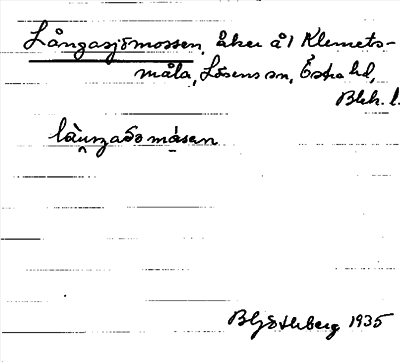 Långasjömossen, åker å 1 Klemets-
måla, Lösens sn, Östra hd,
Blek. l.
làųŋgaʃo måsen
B Götlberg 1935